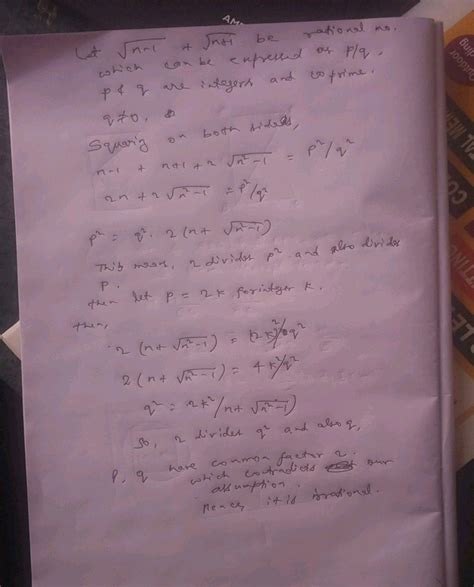 Let √n-1 + √n+1 be rational no.
which can be expressed as p/q,
p & q are integers and coprime.
q≠0.
Squaring on both sides,
n-1 + n+1 + 2 √n²-1 = p²/q²
2n + 2 √n²-1 = p²/q²
p² = q². 2(n + √n²-1)
This means, 2 divides p² and also divides
p.
then let p = 2k for integer k.
then,
2 (n + √n²-1) = (2k)²/q²
2(n + √n²-1) = 4k²/q²
q² = 2k²/n + √n²-1)
So, 2 divides q² and also q,
P, q have common factor 2.
which contradicts our
assumption.
hence it is irrational.
AM